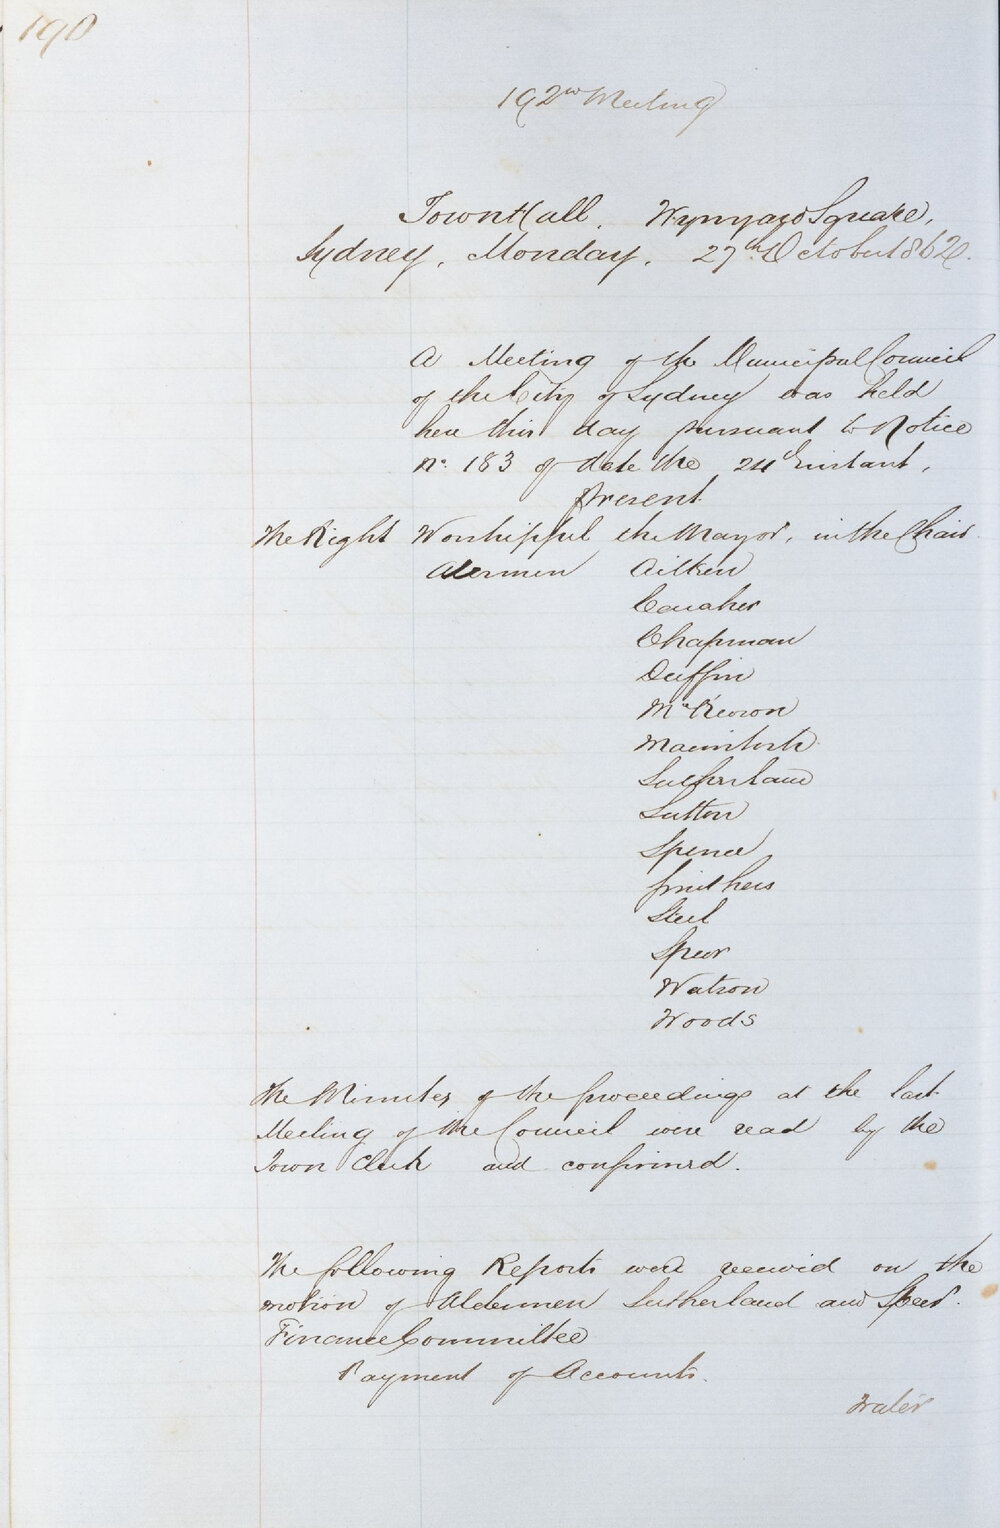 190
192nd Meeting
Town Hall. Wynyard Square,
Sydney, Monday, 27th October 1862.
A Meeting of the Municipal Council
of the City of Sydney was held
here this day pursuant to Notice
No. 183 of date the 24th instant,
Present
The Right Worshipful the Mayor, in the Chair
Aldermen Aitken
Caraher
Chapman
Duffin
McKeown
Macintosh
Sutherland
Sutton
Spence
Smithers
Steel
Speer
Watson
Woods
The Minutes of the proceedings at the last
Meeting of the Council were read by the
Town Clerk and confirmed.
The following Reports were received on the
motion of Aldermen Sutherland and Speer.
Finance Committee
Payment of Accounts.
Water